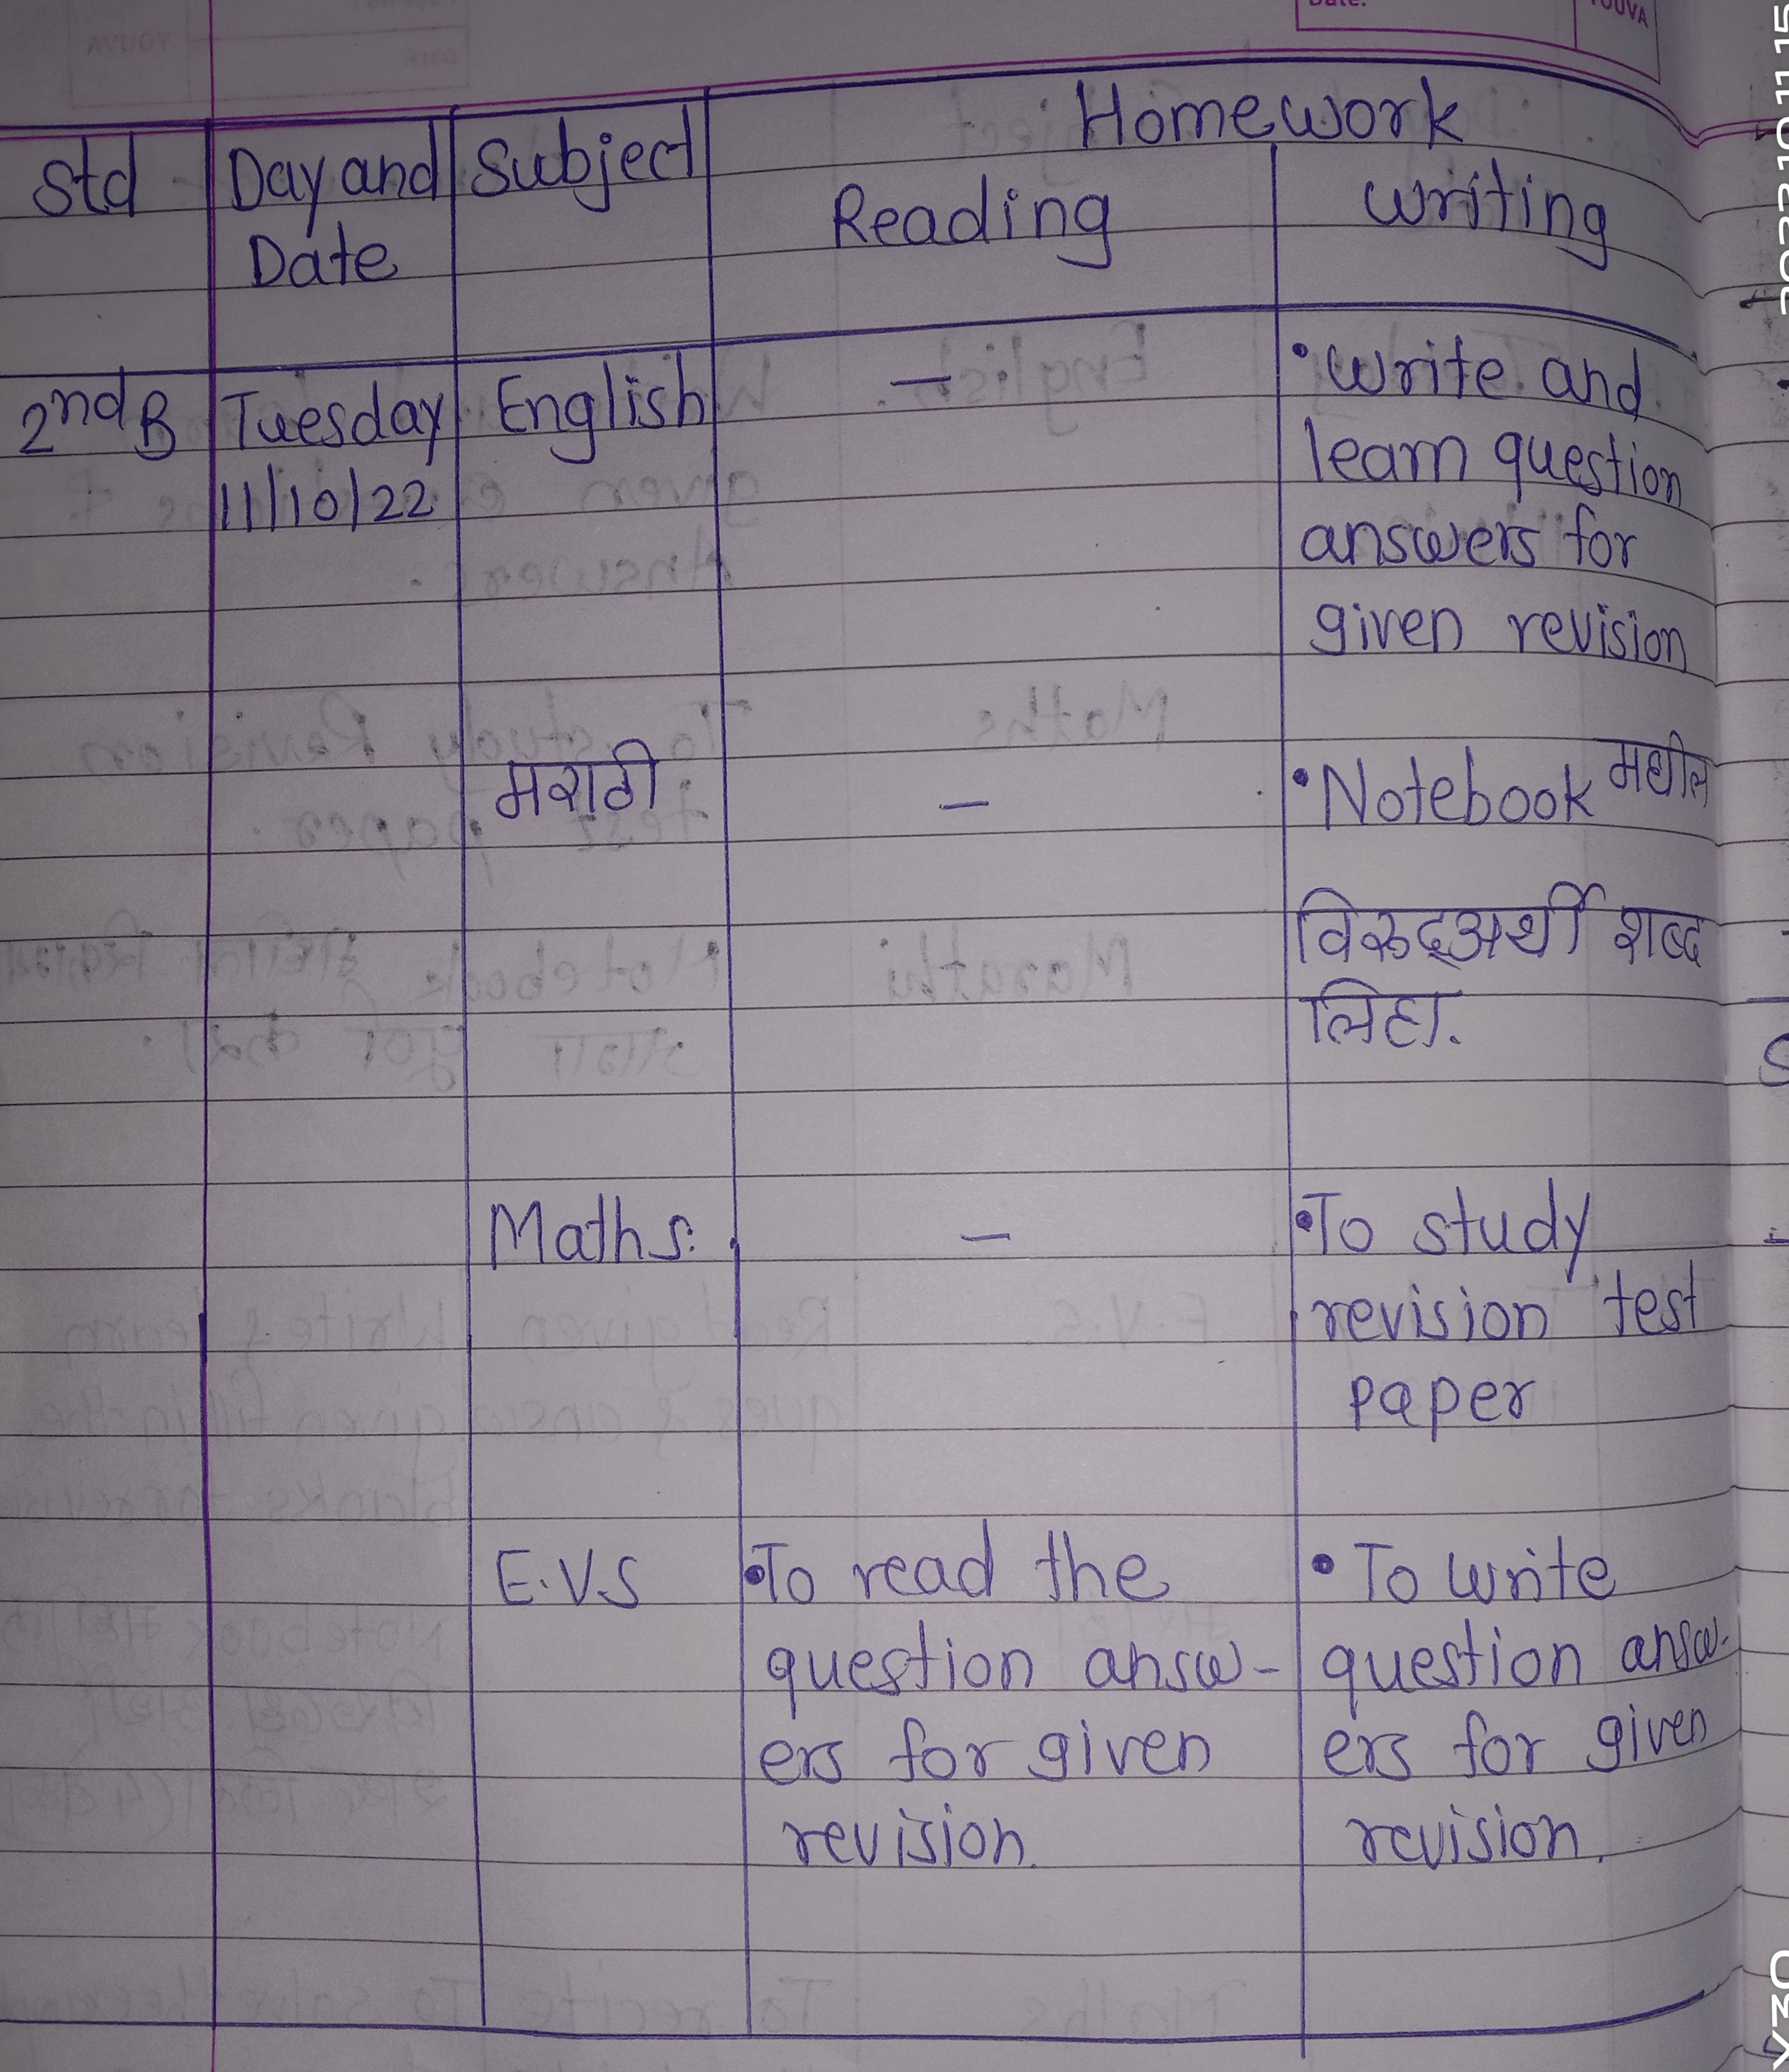 Date:
YOUVA
Homework
Std
Day and
Date
Subject
Reading
writing
2nd B
Tuesday
11/10/22
English
—
• write and
learn question
answers for
given revision
मराठी
—
• Notebook मधील
विरुद्दअर्थी शब्द
लिहा.
Maths.
—
• To study
revision test
paper
E.V.S
• To read the
question answ-
ers for given
revision.
• To write
question answ-
ers for given
revision.